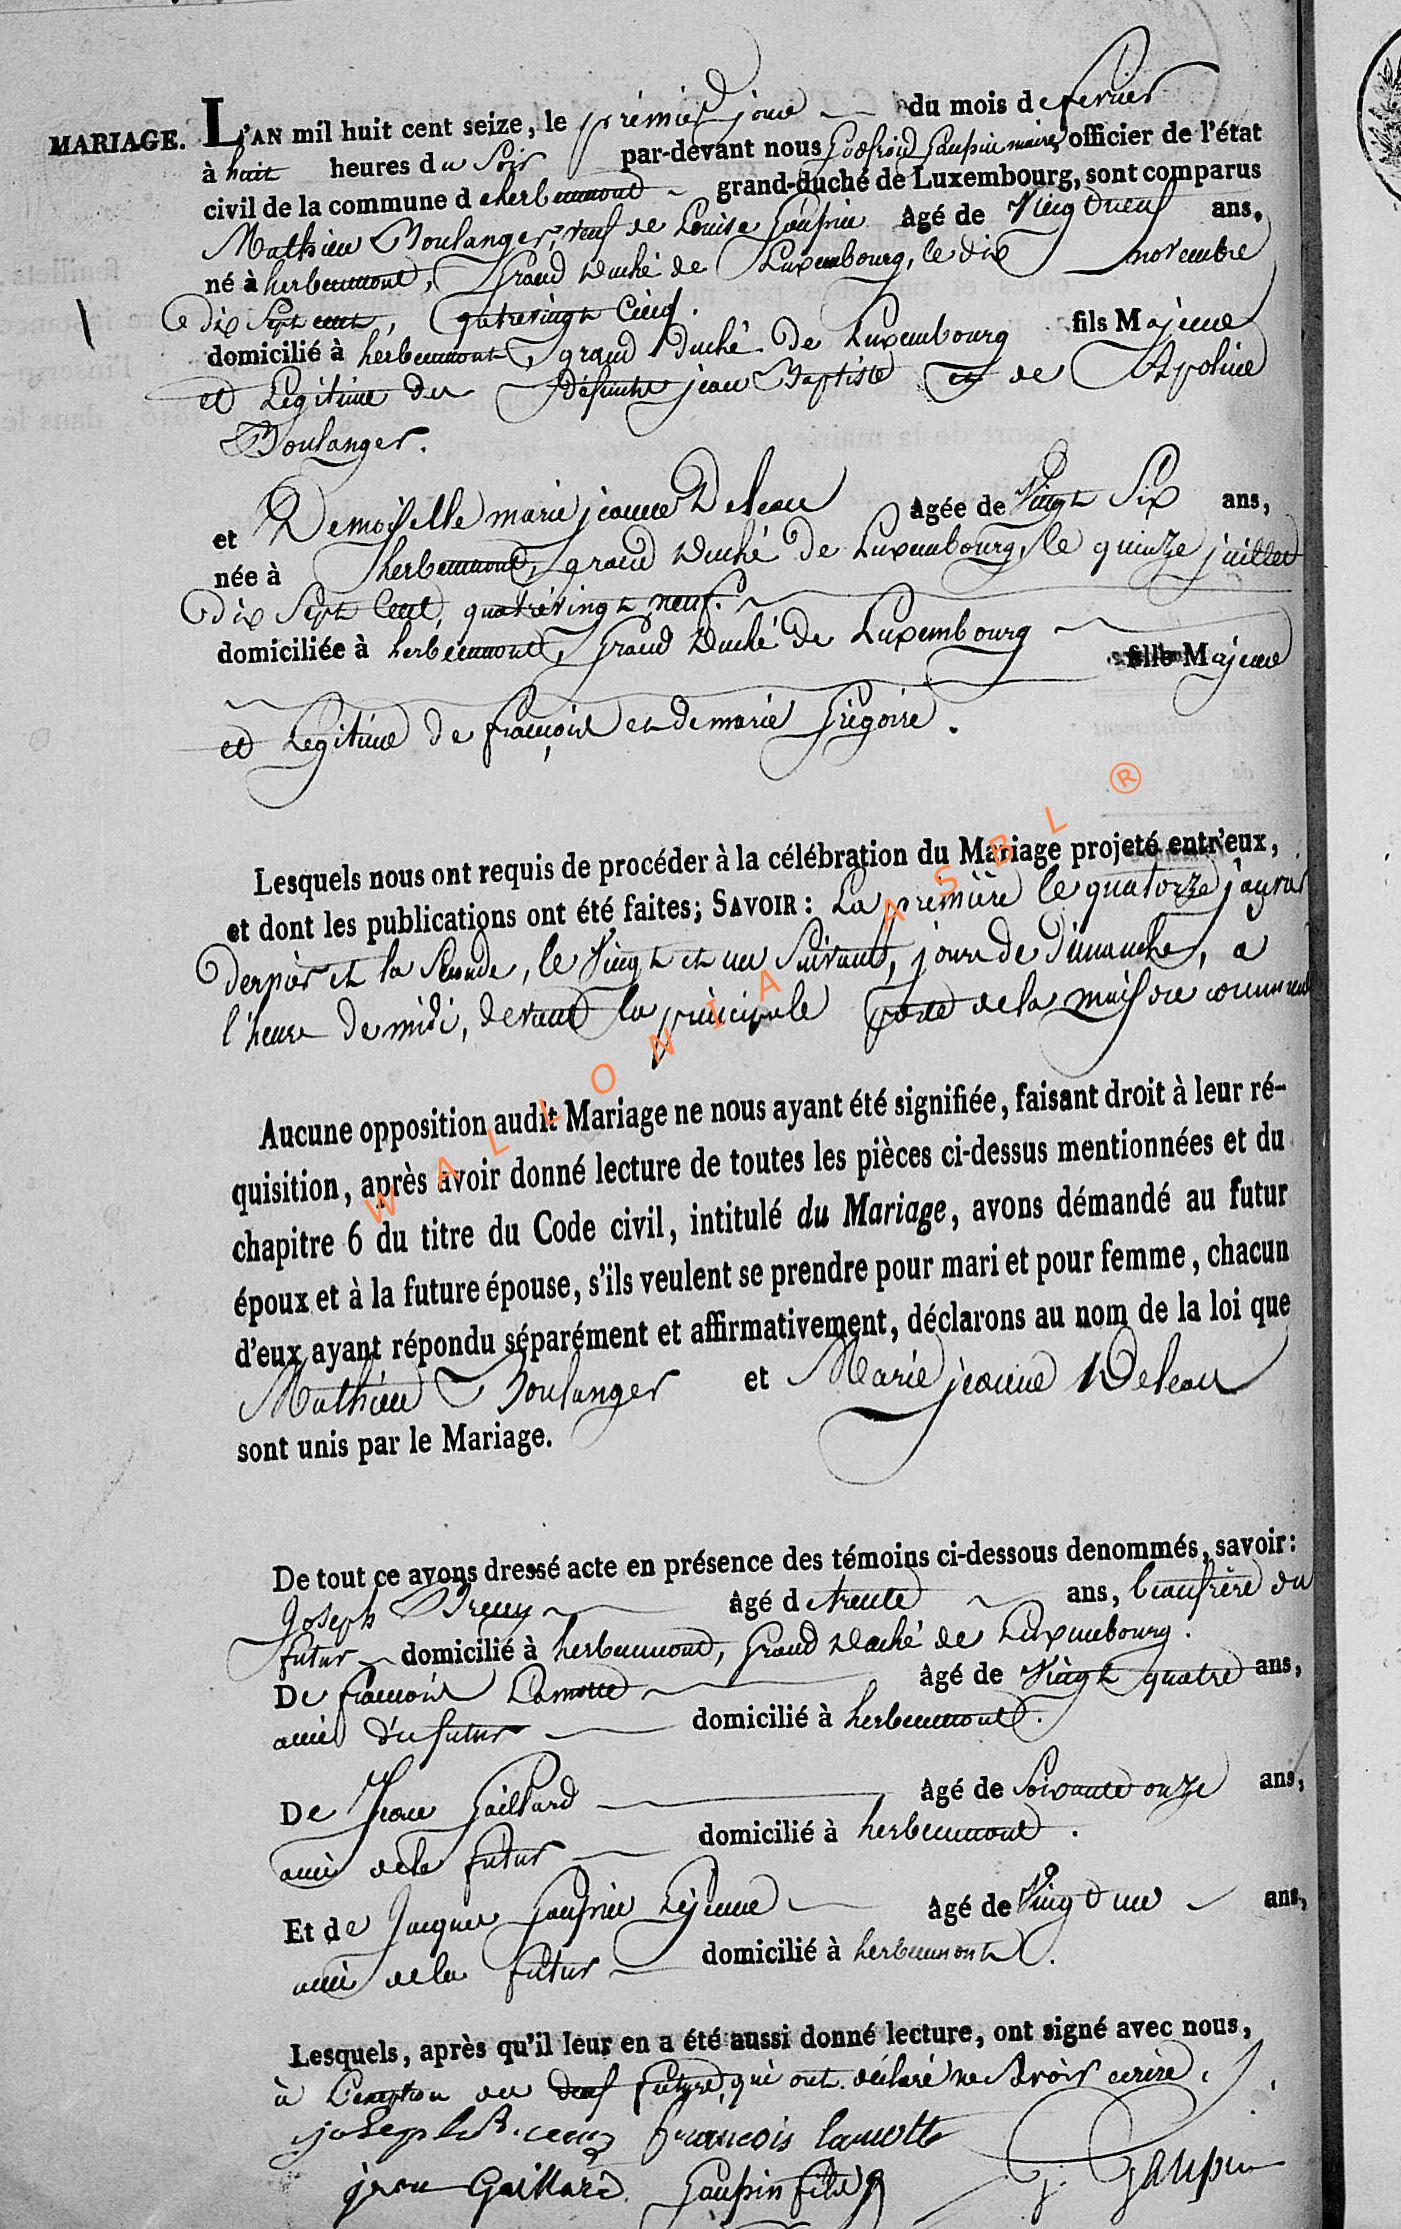 MARIAGE. L'AN mil huit cent seize, le prémier jour du mois de fevrier
à huit heures du Soir par-devant nous Godfroid Gaupin maire, officier de l'état
civil de la commune d'herbeumont grand-duché de Luxembourg, sont comparus
Mathieu Boulanger, veuf de Louise Gaupin âgé de Vingt neuf ans,
né à herbeumont, Grand Duché de Luxembourg, le dix novembre
dix Sept cent, quatrevingt Cinq.
domicilié à herbeumont, grand duché de Luxembourg fils Majeur
et Legitime de défunt jean Baptiste et de Apoline
Boulanger.
et Demoiselle marie jeanne Deleau âgée de Vingt Six ans,
née à herbeumont, grand Duché de Luxembourg, le quinze juillet
dix Sept Cent, quatrévingt neuf.
domiciliée à herbeumont, Grand Duché de Luxembourg fille Majeure
et Legitime de françois et de marie Grégoire.
Lesquels nous ont requis de procéder à la célébration du Mariage projeté entr'eux,
et dont les publications ont été faites; SAVOIR: La première le quatorze janvier
dernier et la Seconde, le Vingt et un Suivant, jour de Dimanche, a
l'heure de midi, devant la principale porte de la maison commune
Aucune opposition audit Mariage ne nous ayant été signifiée, faisant droit à leur ré-
quisition, après avoir donné lecture de toutes les pièces ci-dessus mentionnées et du
chapitre 6 du titre du Code civil, intitulé du Mariage, avons démandé au futur
époux et à la future épouse, s'ils veulent se prendre pour mari et pour femme, chacun
d'eux ayant répondu séparément et affirmativement, déclarons au nom de la loi que
Mathieu Boulanger et Marie jeanne Deleau
sont unis par le Mariage.
De tout ce avons dressé acte en présence des témoins ci-dessous denommés, savoir:
Joseph âgé de trente ans, beaufrère du
futur domicilié à herbeumont, Grand Duché de Luxembourg.
De françois Lamotte âgé de Vingt quatre ans,
ami du futur domicilié à herbeumont.
De Jean Gaillard âgé de Soixante onze ans,
ami de la futur domicilié à herbeumont.
Et de Jacques Gaupin Lejeune âgé de Vingt un ans,
ami de la futur domicilié à herbeumont.
Lesquels, après qu'il leur en a été aussi donné lecture, ont signé avec nous,
à L'exeption des deux future, qui ont déclaré ne Savoir ecrire.
joseph françois lamotte
jean Gaillard. Gaupin fils G. Gaupin
WALLONIA ASBL ®